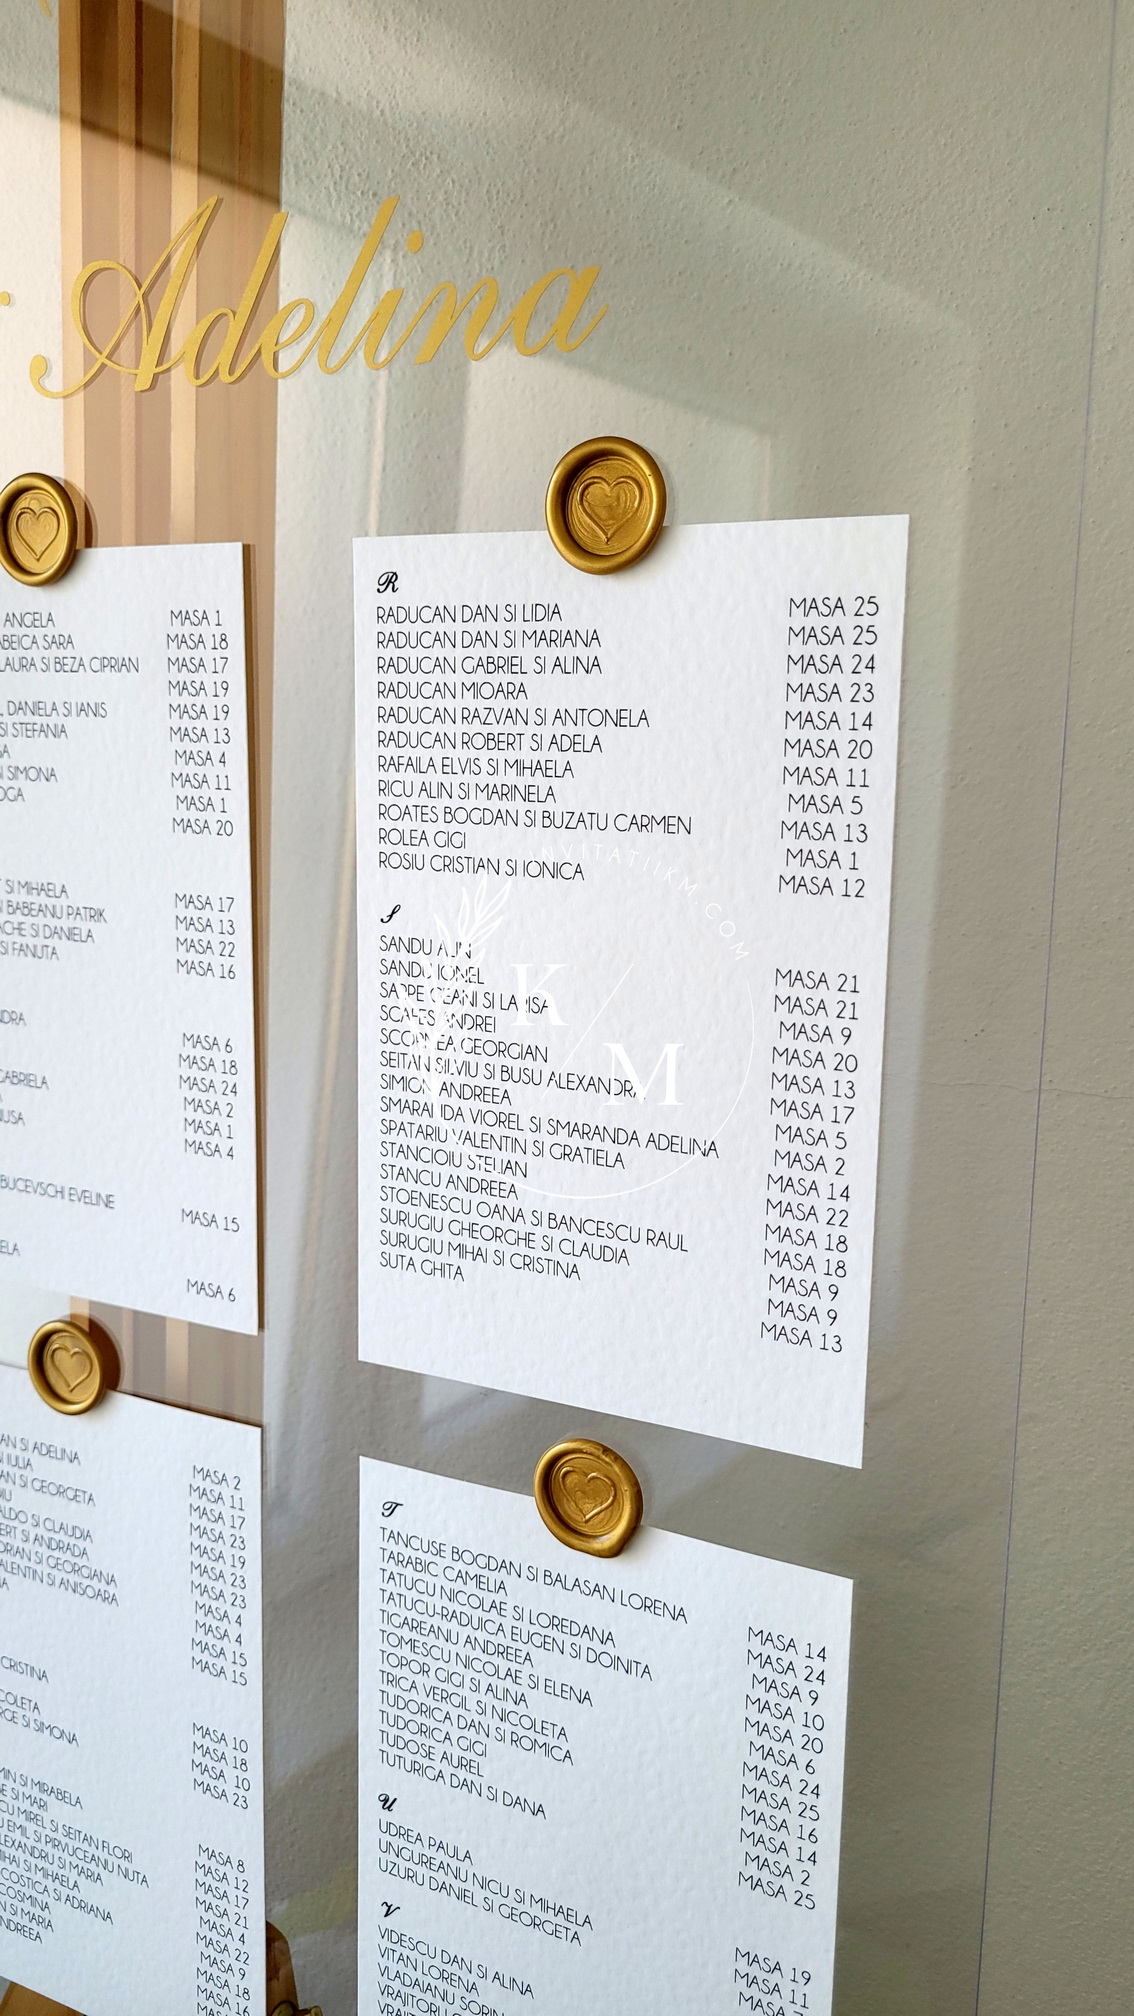 Adelina
ANGELA MASA 1
ABEICA SARA MASA 18
LAURA SI BEZA CIPRIAN MASA 17
MASA 19
DANIELA SI IANIS MASA 19
SI STEFANIA MASA 13
MASA 4
SIMONA MASA 11
MASA 1
MASA 20
SI MIHAELA MASA 17
BABEANU PATRIK MASA 13
SI DANIELA MASA 22
SI FANUTA MASA 16
MASA 6
MASA 18
GABRIELA MASA 24
MASA 2
MASA 1
MASA 4
BUCEVSCHI EVELINE MASA 15
MASA 6
R
RADUCAN DAN SI LIDIA MASA 25
RADUCAN DAN SI MARIANA MASA 25
RADUCAN GABRIEL SI ALINA MASA 24
RADUCAN MIOARA MASA 23
RADUCAN RAZVAN SI ANTONELA MASA 14
RADUCAN ROBERT SI ADELA MASA 20
RAFAILA ELVIS SI MIHAELA MASA 11
RICU ALIN SI MARINELA MASA 5
ROATES BOGDAN SI BUZATU CARMEN MASA 13
ROLEA GIGI MASA 1
ROSIU CRISTIAN SI IONICA MASA 12
INVITATIIKM.COM
K
M
S
SANDU ALIN MASA 21
SANDU IONEL MASA 21
GEANI SI LARISA MASA 9
ANDREI MASA 20
GEORGIAN MASA 13
SEITAN SILVIU SI BUSU ALEXANDRA MASA 17
SIMION ANDREEA MASA 5
SMARANDA VIOREL SI SMARANDA ADELINA MASA 2
SPATARIU VALENTIN SI GRATIELA MASA 14
STANCIOIU STELIAN MASA 22
STANCU ANDREEA MASA 18
STOENESCU OANA SI BANCESCU RAUL MASA 18
SURUGIU GHEORGHE SI CLAUDIA MASA 9
SURUGIU MIHAI SI CRISTINA MASA 9
SUTA GHITA MASA 13
SI ADELINA MASA 2
IULIA MASA 11
SI GEORGETA MASA 17
MASA 23
SI CLAUDIA MASA 19
SI ANDRADA MASA 23
SI GEORGIANA MASA 23
SI ANISOARA MASA 4
MASA 4
MASA 15
MASA 15
CRISTINA
MASA 10
MASA 18
SI SIMONA MASA 10
MASA 23
SI MIRABELA MASA 8
SI MARI MASA 12
MIREL SI SEITAN FLORI MASA 17
EMIL SI PIRVUCEANU NUTA MASA 21
SI MARIA MASA 4
SI MIHAELA MASA 22
COSTICA SI ADRIANA MASA 9
COSMINA MASA 18
SI MARIA MASA 16
T
TANCUSE BOGDAN SI BALASAN LORENA MASA 14
TARABIC CAMELIA MASA 24
TATUCU NICOLAE SI LOREDANA MASA 9
TATUCU-RADUICA EUGEN SI DOINITA MASA 10
TIGAREANU ANDREEA MASA 20
TOMESCU NICOLAE SI ELENA MASA 6
TOPOR GIGI SI ALINA MASA 24
TRICA VERGIL SI NICOLETA MASA 25
TUDORICA DAN SI ROMICA MASA 16
TUDORICA GIGI MASA 14
TUDOSE AUREL MASA 2
TUTURIGA DAN SI DANA MASA 25
U
UDREA PAULA MASA 19
UNGUREANU NICU SI MIHAELA MASA 11
UZURU DANIEL SI GEORGETA MASA
V
VIDESCU DAN SI ALINA
VITAN LORENA
VLADAIANU SORIN